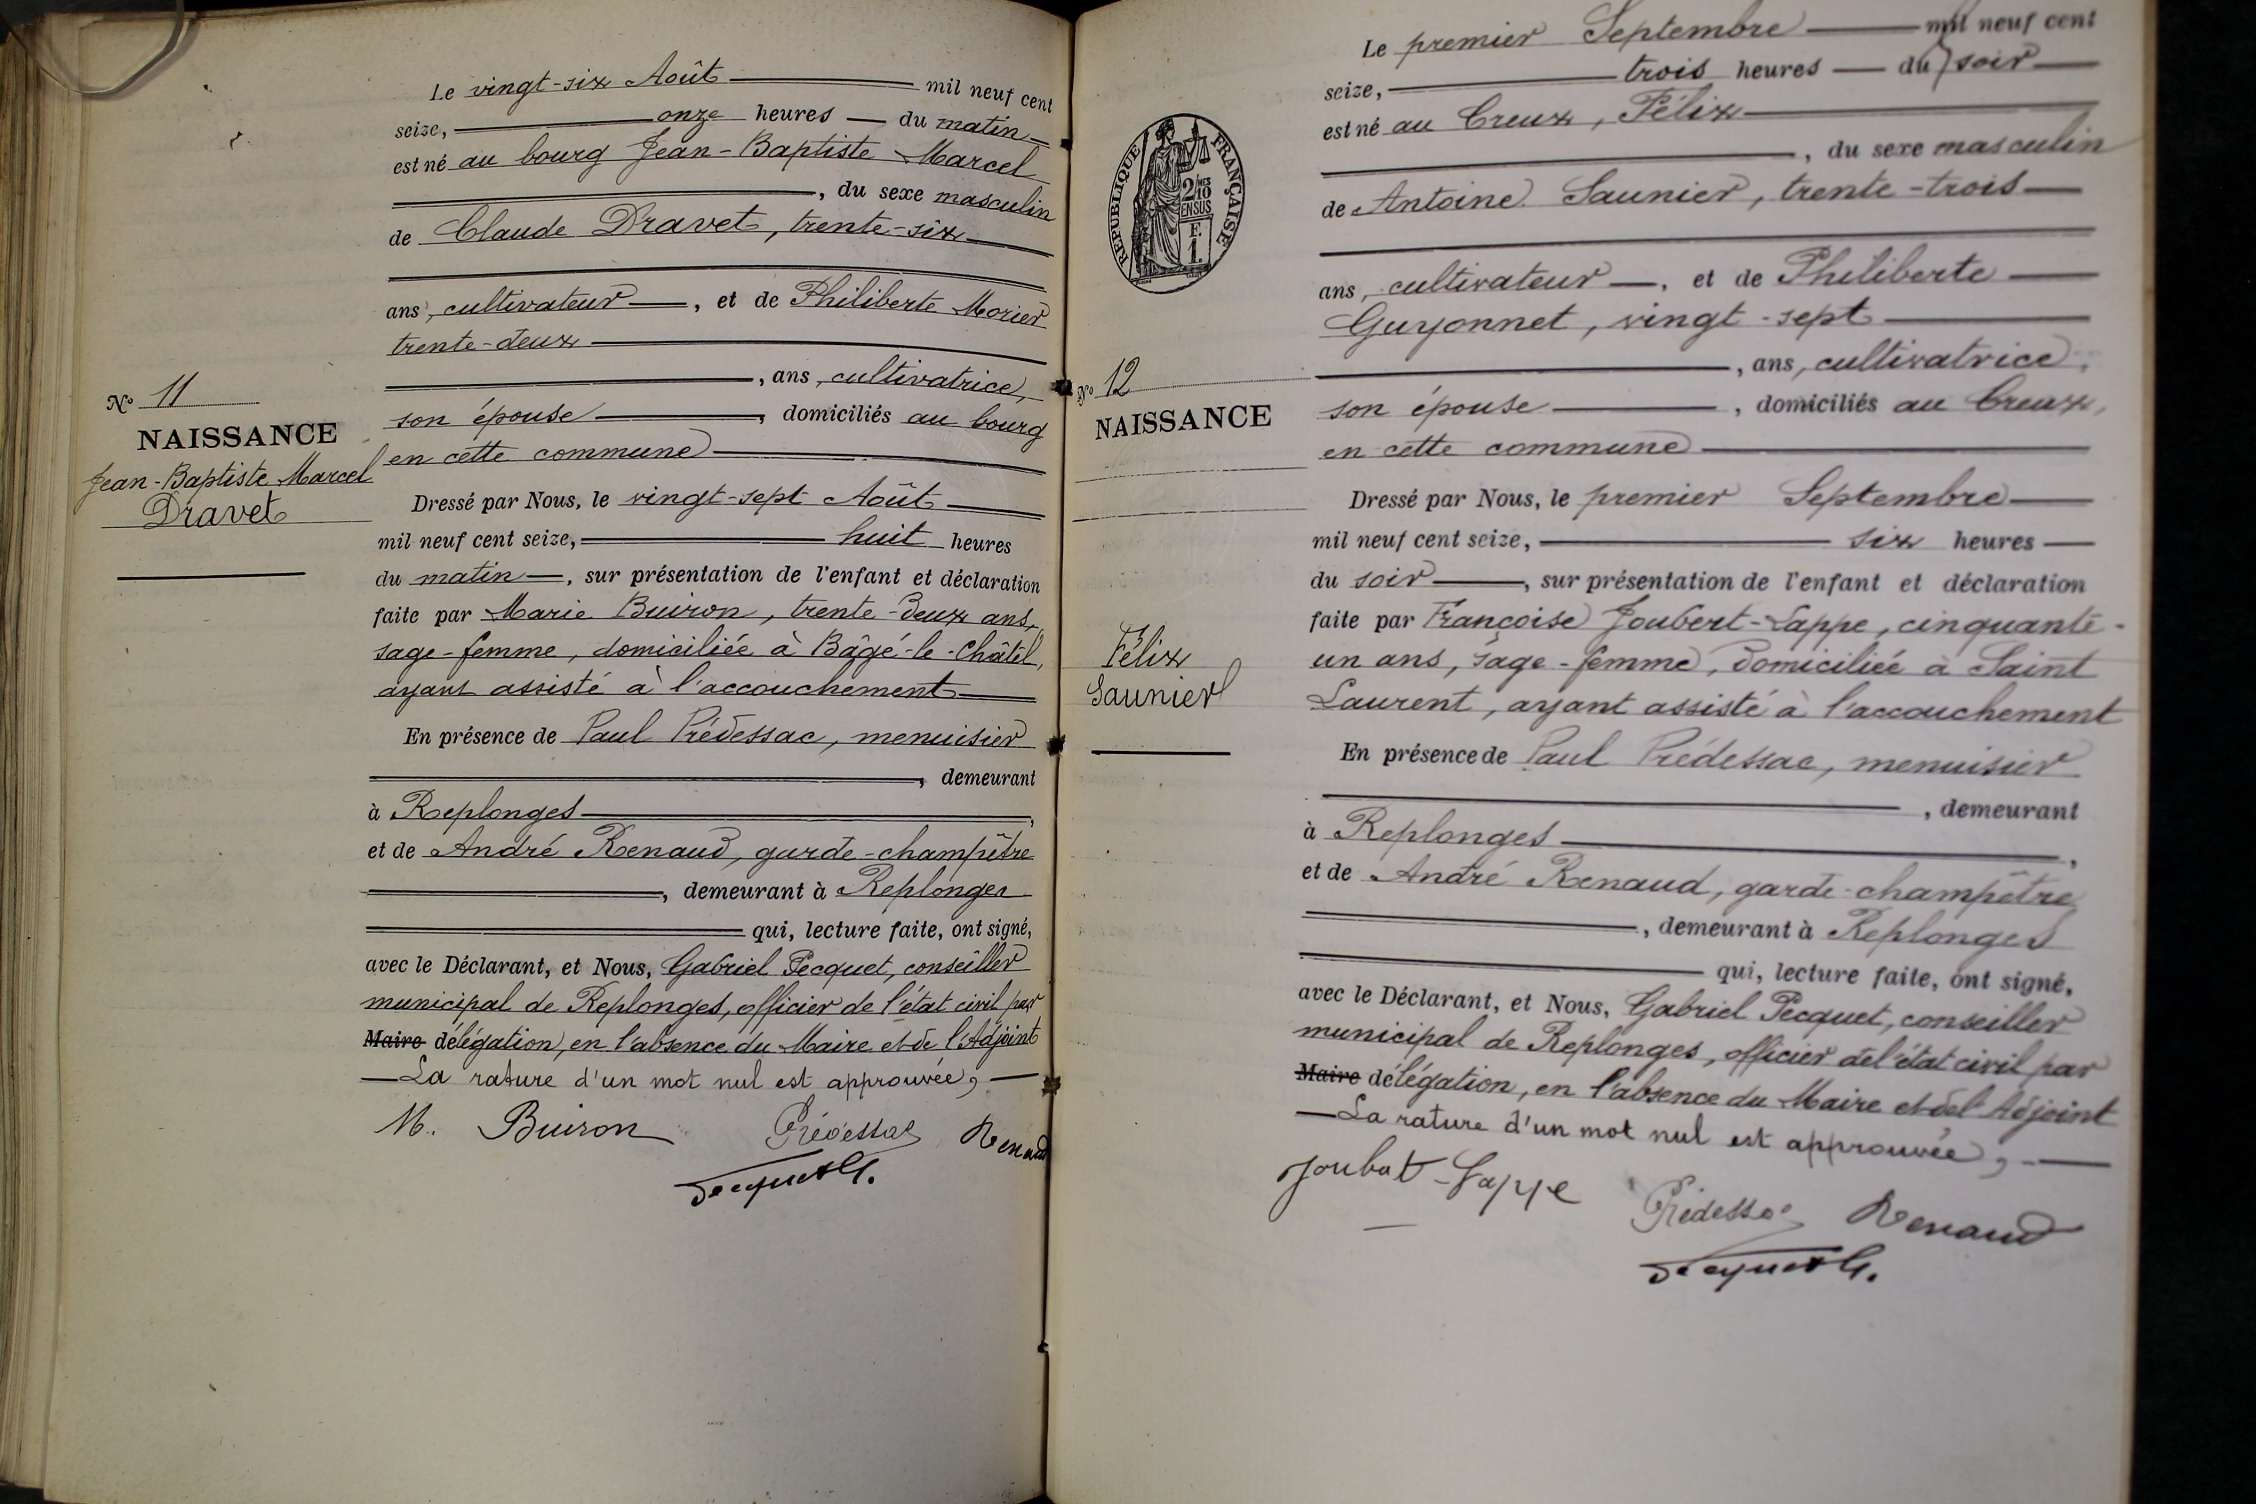 Le vingt-six Août mil neuf cent
seize, onze heures du matin
est né au bourg Jean-Baptiste Marcel
, du sexe masculin
de Claude Dravet, trente-six
ans, cultivateur, et de Philiberte Morier
trente-deux
, ans, cultivatrice,
son épouse, domiciliés au bourg
en cette commune
N° 11
NAISSANCE
Jean-Baptiste Marcel
Dravet
Dressé par Nous, le vingt-sept Août
mil neuf cent seize, huit heures
du matin, sur présentation de l'enfant et déclaration
faite par Marie Buiron, trente-deux ans,
sage-femme, domiciliée à Bâgé-le-Châtel,
ayant assisté à l'accouchement
En présence de Paul Prédessac, menuisier
, demeurant
à Replonges,
et de André Renaud, garde-champêtre
, demeurant à Replonges
qui, lecture faite, ont signé,
avec le Déclarant, et Nous, Gabriel Pecquet, conseiller
municipal de Replonges, officier de l'état civil par
Maire délégation, en l'absence du Maire et de l'Adjoint
La rature d'un mot nul est approuvée,
M. Buiron Prédessac Renaud
Pecquet G.
Le premier Septembre mil neuf cent
seize, trois heures du soir
est né au Creux, Félix
, du sexe masculin
de Antoine Saunier, trente-trois
ans, cultivateur, et de Philiberte
Guyonnet, vingt-sept
, ans, cultivatrice,
son épouse, domiciliés au Creux,
en cette commune
RÉPUBLIQUE FRANÇAISE
2/10MES
EN SUS
F.
1.
N° 12
NAISSANCE
Félix
Saunier
Dressé par Nous, le premier Septembre
mil neuf cent seize, six heures
du soir, sur présentation de l'enfant et déclaration
faite par Françoise Joubert-Lappe, cinquante-
un ans, sage-femme, domiciliée à Saint
Laurent, ayant assisté à l'accouchement
En présence de Paul Prédessac, menuisier
, demeurant
à Replonges,
et de André Renaud, garde-champêtre
, demeurant à Replonges
qui, lecture faite, ont signé,
avec le Déclarant, et Nous, Gabriel Pecquet, conseiller
municipal de Replonges, officier de l'état civil par
Maire délégation, en l'absence du Maire et de l'Adjoint
La rature d'un mot nul est approuvée,
Joubert-Lappe
Prédessac Renaud
Pecquet G.